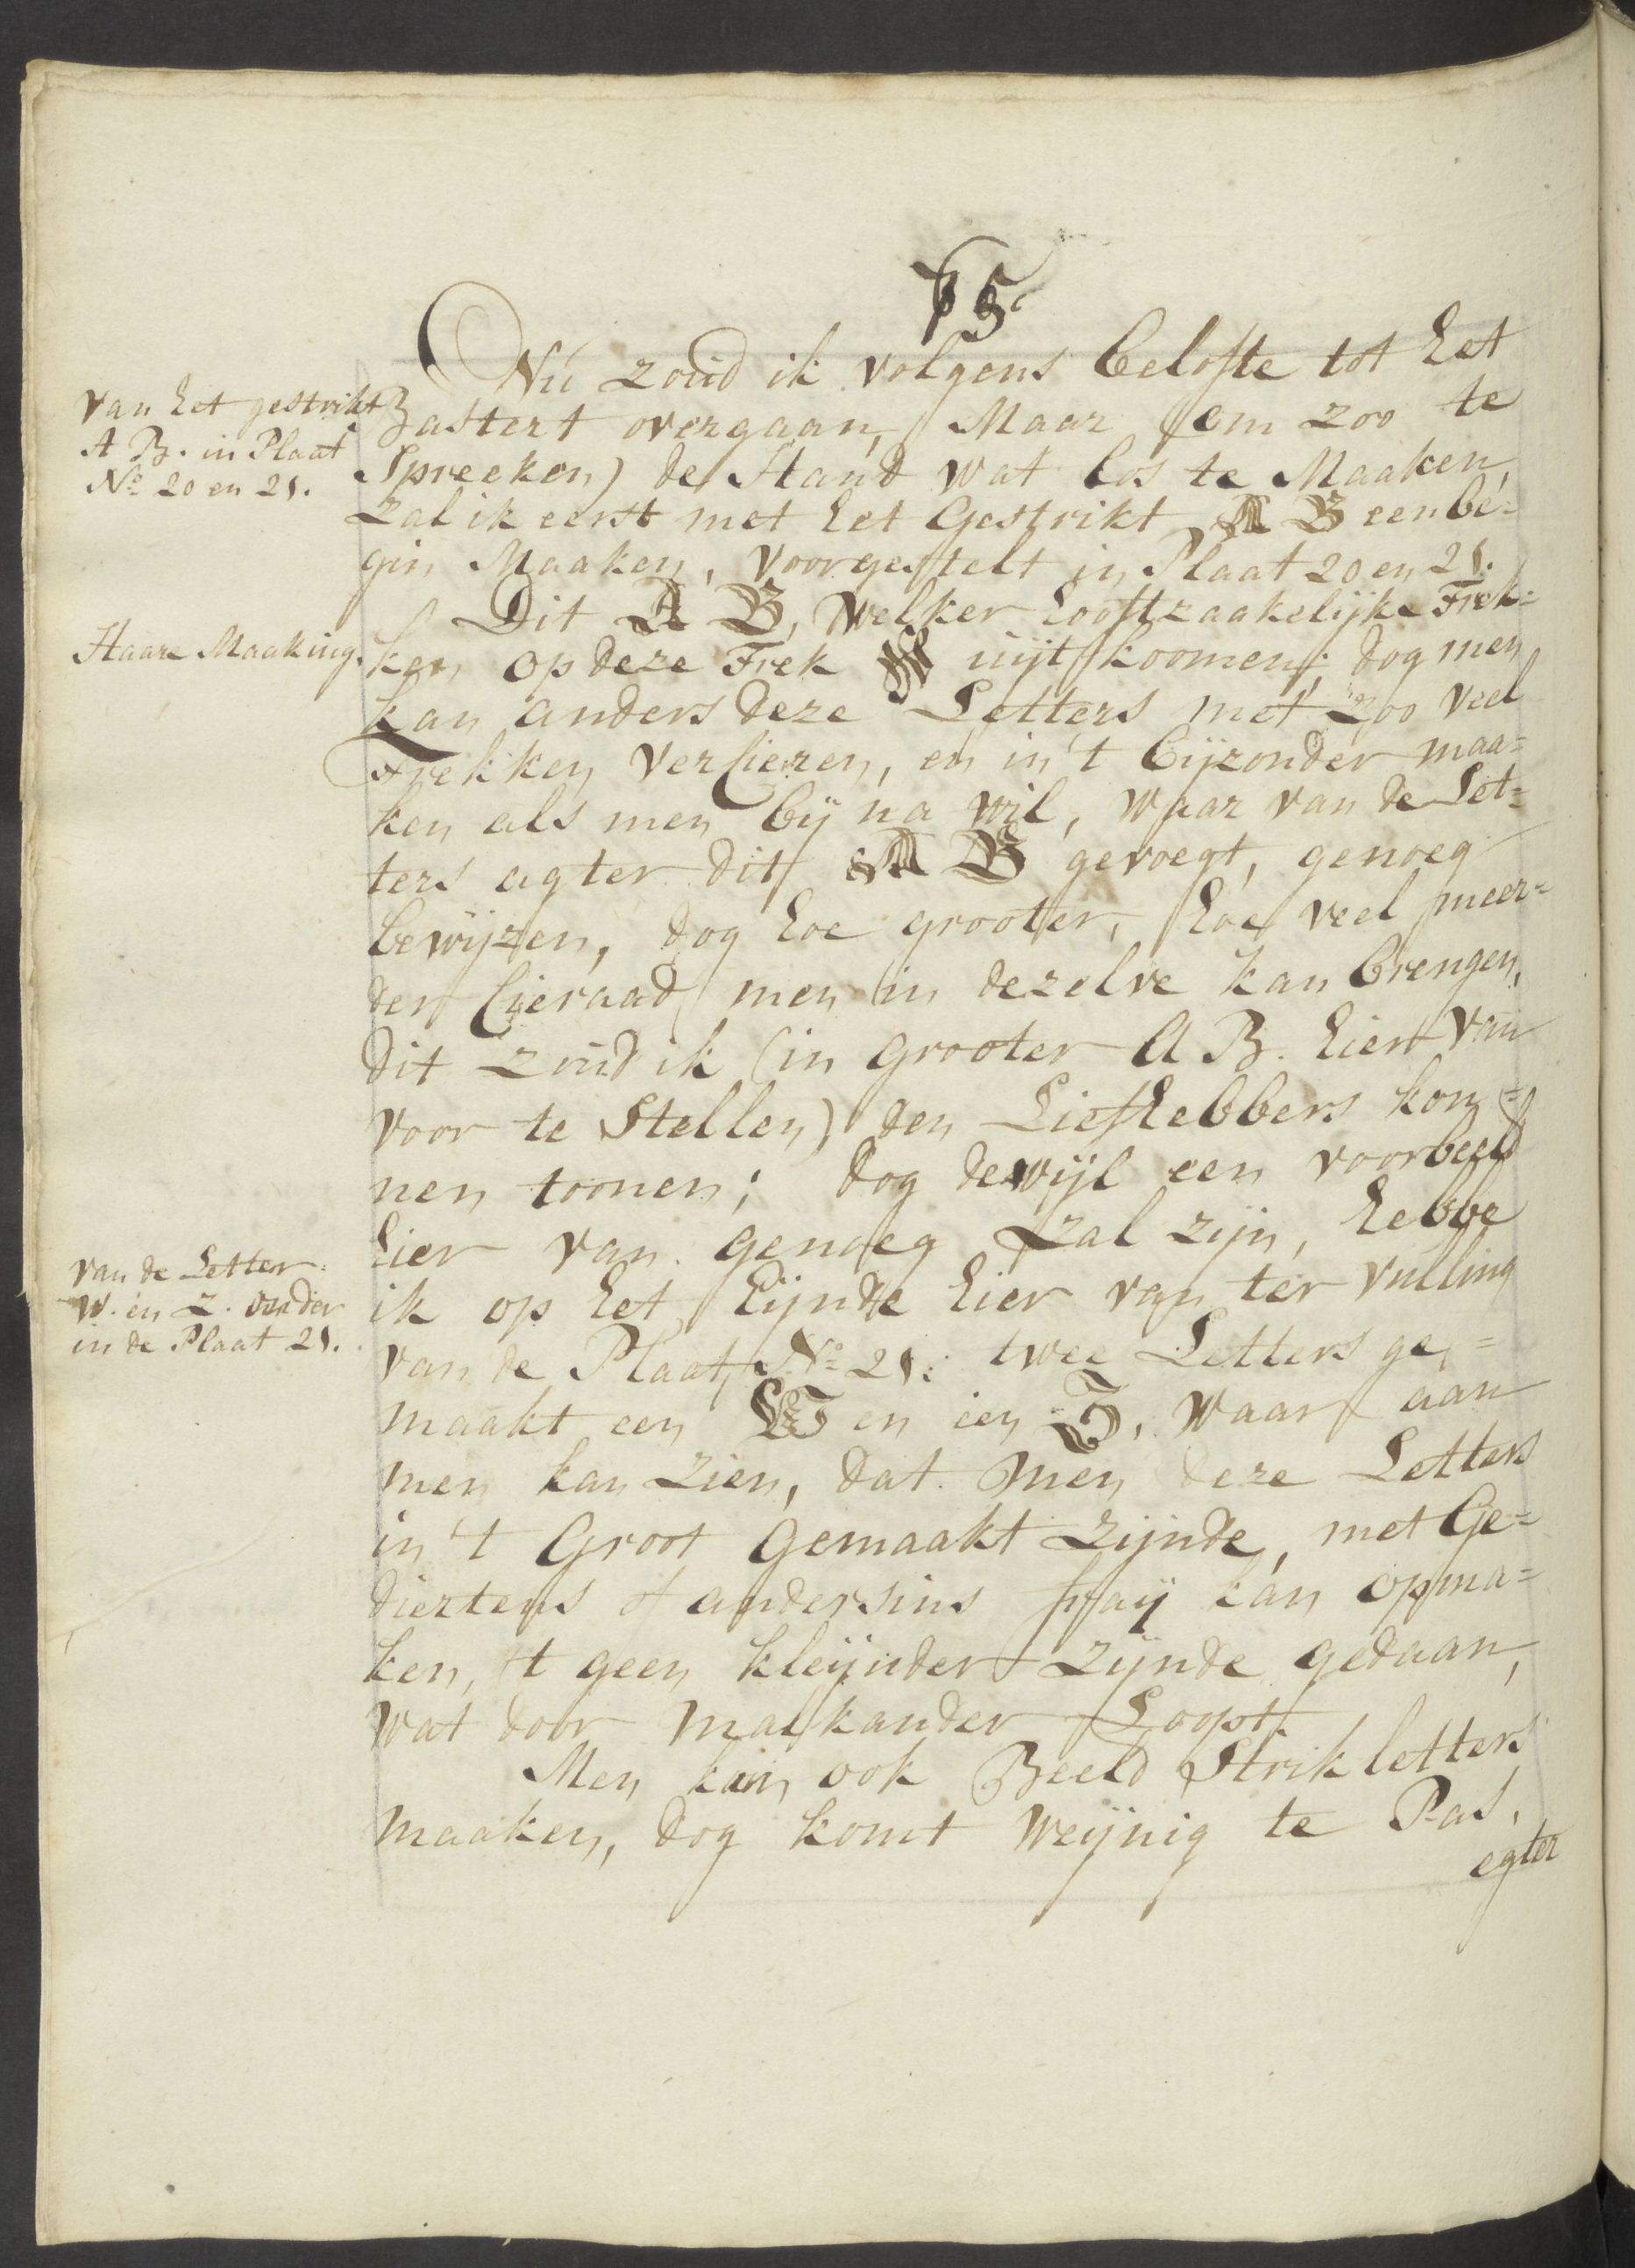 § 5.
Nú zoúd ik volgens belofte tot het
Bastert overgaan, Maar (om zoo te
Spreeken) de Hand wat los te Maaken,
Zal ik eerst met het Gestrikt A B een be=
gin Maaken, voorgestelt in Plaat 20 en 21.
Dit A B, welker hooftzaakelijke Trek=
ken op deze Trek uijtkoomen; dog men
kan anders deze Letters met zoo veel
Trekken Vercieren, en in 't bijzonder maa=
ken als men bij na wil, waar van de Let=
ters agter dit A B gevoegt, genoeg
bewijzen, dog hoe grooter, hoe veel meer=
der Cieraad men in dezelve kan brengen,
dit zoúd ik (in grooter A B. hier van
voor te Stellen) den Liefhebbers kon=
nen toonen; dog dewijl een voorbeeld
hier van genoeg zal zijn, hebbe
ik op het Eijnde hier van ter vulling
van de Plaat No 21: twee Letters ge=
maakt een W en een Z, waar aan
men kan zien, dat men deze Letters
in 't Groot Gemaakt zijnde, met Ge=
diertens of andersins fraij kan opma=
ken, 't geen kleijnder zijnde gedaan,
wat door malkander Loopt.
Men kan ook Beeld Strikletters
maaken, dog komt weijnig te Pas,
egter
van het gestrikt
A B. in Plaat
No 20 en 21.
Haare Maaking.
van de Letter
W. en Z. onder
in de Plaat 21.